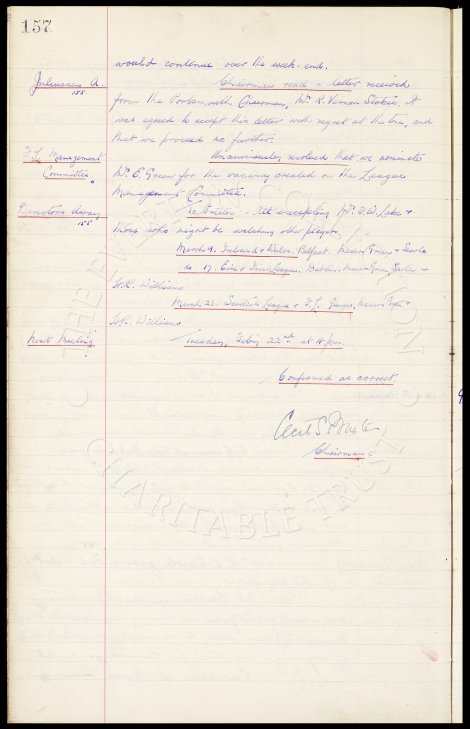 157
would continue over the week-end.
Juliussen A. 155.
Chairman read a letter received
from the Portsmouth Chairman, Mr. R. Vernon Stokes. It
was agreed to accept this letter with regret at the tone, and
that we proceed no further.
F.L. Management Committee.
Unanimously resolved that we nominate
Mr. E. Green for the vacancy created on the League
Management Committee.
Directors Away 155
To Preston - All excepting Mr. T.W. Lake &
those who might be watching other players,
March 9. Ireland v Wales. Belfast. Messrs Green & Searle
to 17. Eire v Irish League. Dublin. Messrs Green, &
H.R. Williams
March 23. Scottish League v F.L. Glasgow, Messrs Green &
H.R. Williams
Next Meeting
Tuesday, Feb'y 22nd at 4 p.m.
Confirmed as correct.
Cecil S.
Chairman.
THE EVERTON COLLECTION
CHARITABLE TRUST